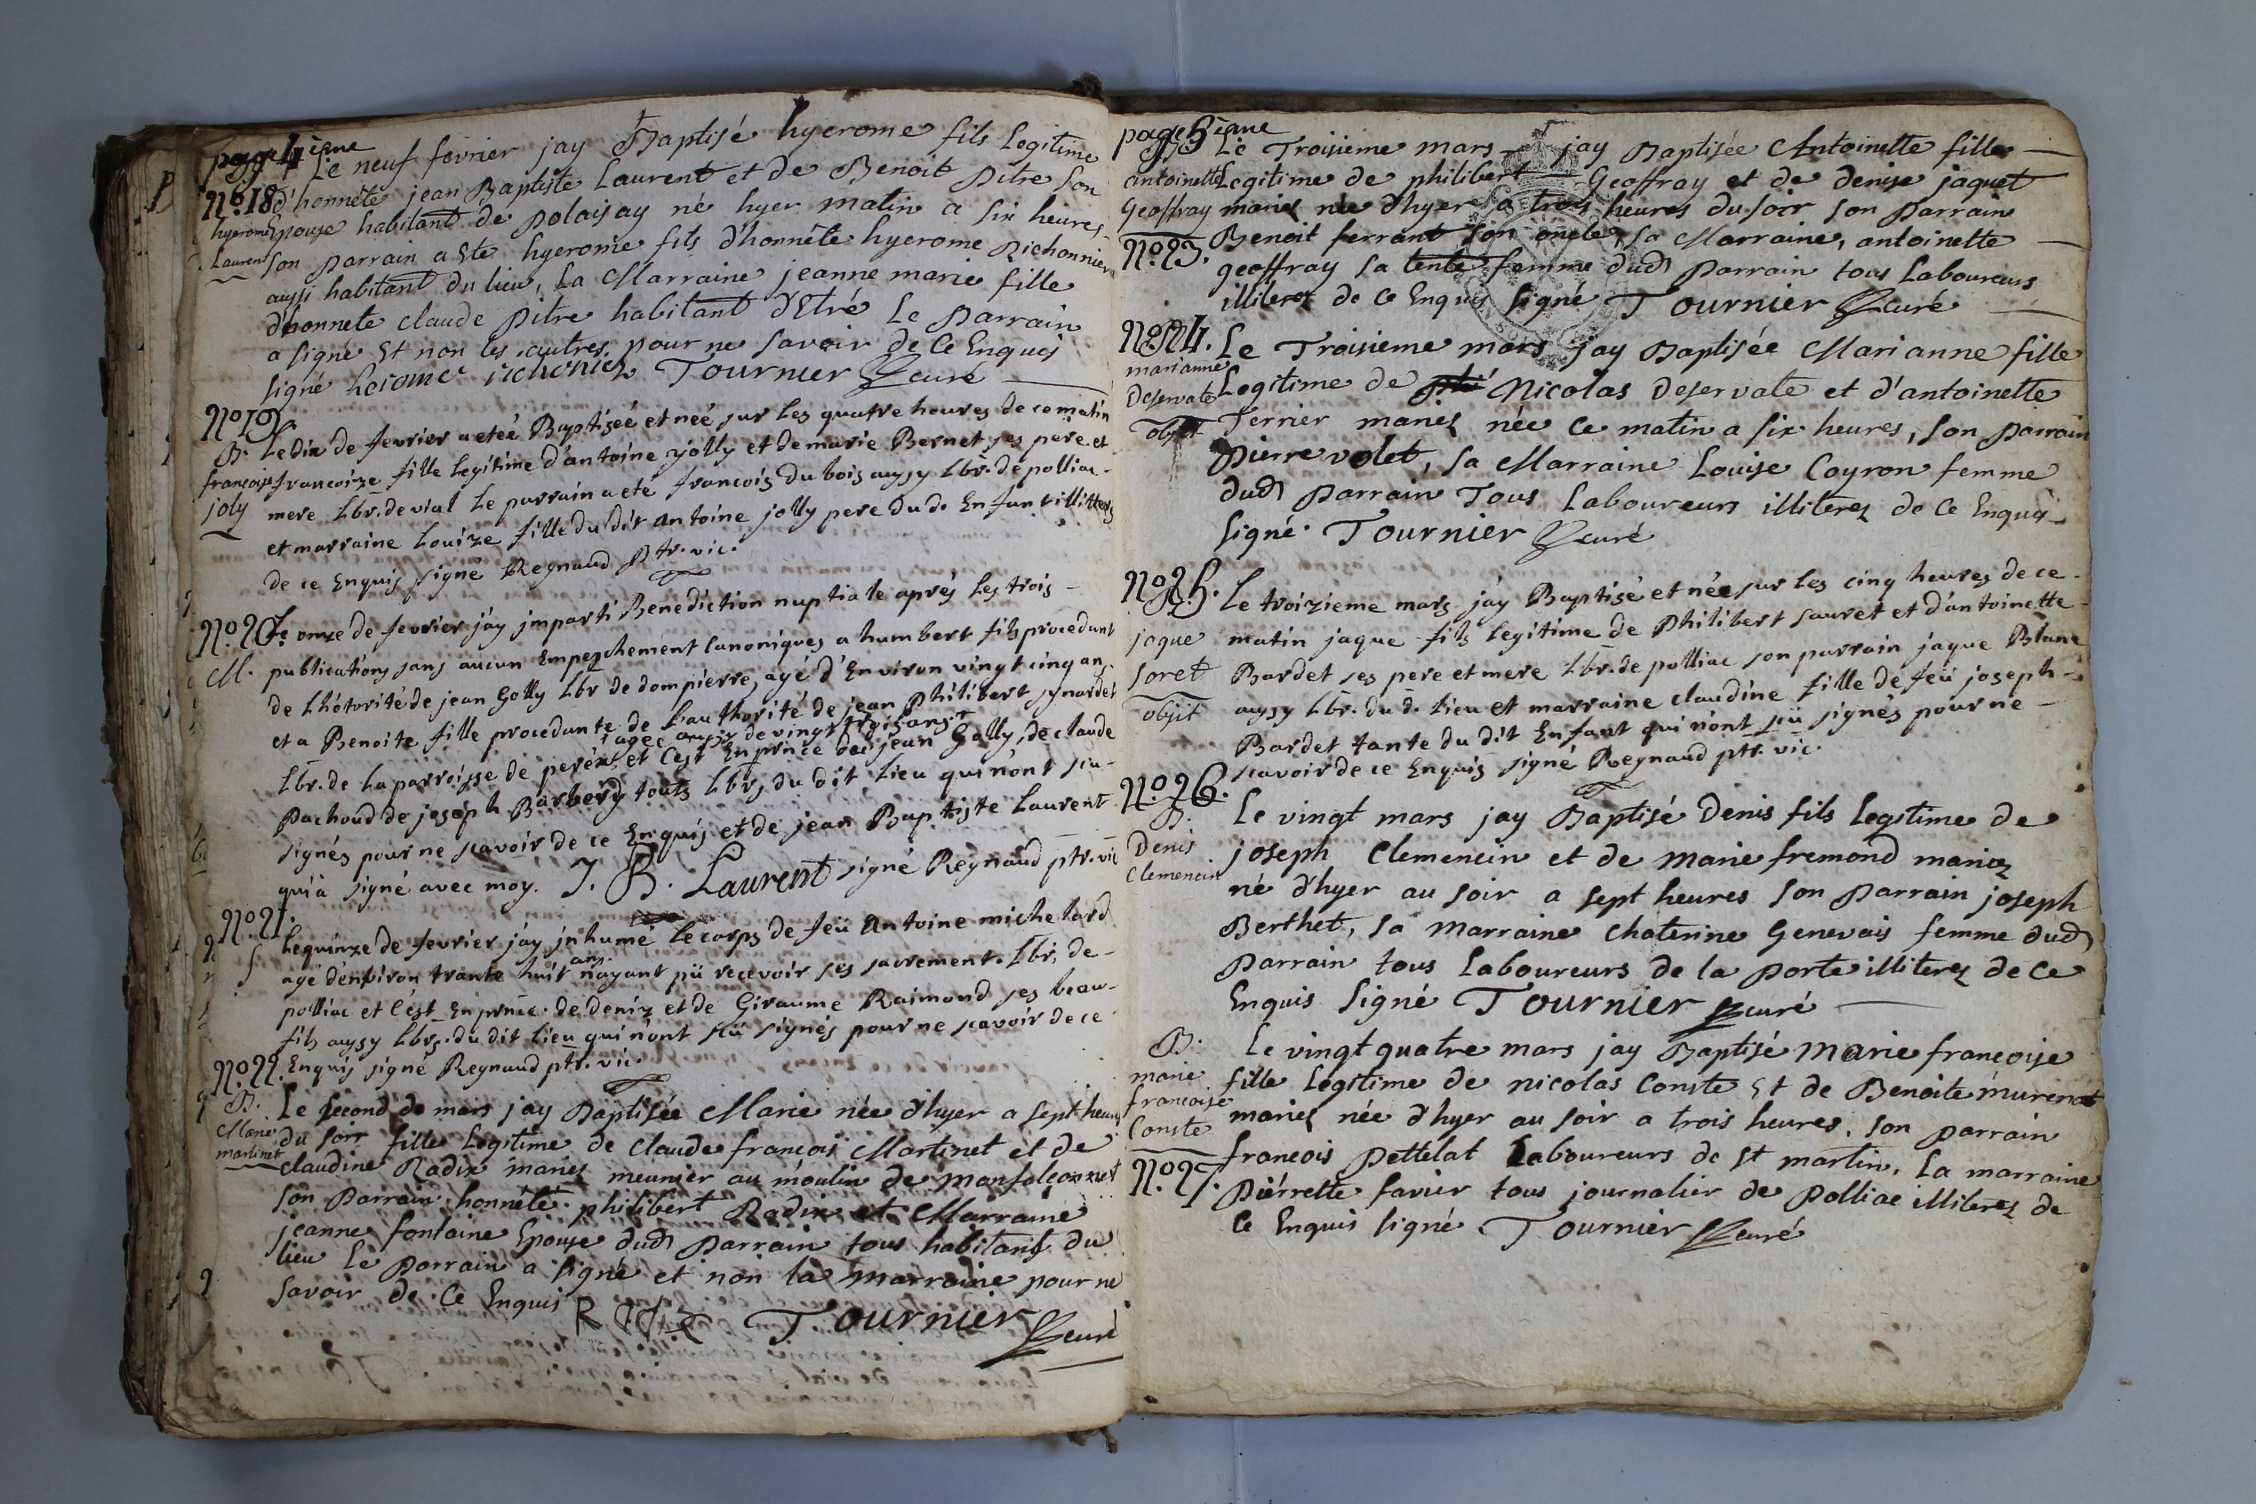 page 4ème
Le neuf fevrier jay Baptisé hyerome fils Legitime
No. 18 d'honnête jean Baptiste Laurent et de Benoit Pitre son
hyerome Epouse habitant de polaisay né hyer matin a six heures
Laurent son parrain a Ete hyerome fils d'honnête hyerome Richonnier
aussi habitant du lieu, La Marraine jeanne marie fille
d'honnete claude Pitre habitant d'Etré Le parrain
a signé Et non les autres pour ne savoir de Ce Enquis
signé heromé richonier Tournier curé
No 19
B. Le dix de fevrier a eteé Baptiseé et neé sur les quatre heures de ce matin
françoise francoize fille legitime d'antoine jolly et de marie Bernet ses pere et
joly mere Lbr. de vial Le parrain a eté francois du bois aussy Lbr. de polliac
et marraine Louize fille du dit antoine jolly pere du d. Enfant illitters
de ce Enquis signé Regnaud ptr. vic.
No. 20 Le onze de fevrier jay jmparti Benediction nuptiale aprés les trois
M. publications sans aucun Empeschement Canoniques a humbert fils procedant
de Lhotorité de jean Golly Lbr de dompierre, agé d'Environ vingt cinq an
et a Benoite fille procedante de Lauthorité de jean Philibert synardet
agée aussy de vingt trois ans
Lbr. de La parroisse de peréx et C'est En prnce des jean Golly, de claude
Pachoud de joseph Barberd touts Lbrs du dit Lieu qui n'ont sçu
signés pour ne scavoir de ce Enquis et de jean Baptiste Laurent
qui a signé avec moy. J. B. Laurent signé Regnaud ptr. vic
No. 21.
S Le quinze de fevrier jay jnhumé Le corps de feü Antoine michelard
agé d'environ trante huit ans n'ayant pü recevoir ses sacrement. Lbr. de
polliac et C'est En prnce. de deniz et de Giraume Raimond ses beau-
fils aussy Lbrs. du dit Lieu qui n'ont sçü signés pour ne scavoir de ce
No. 22. Enquis signé Regnaud ptr. vic.
B. Le second de mars jay Baptisée Marie née d'hyer a sept heures
Marie du soir fille Legitime de Claude françois Martinet et de
martinet claudine Radix mariés meunier au moulin de monfalconnet
son Parrain honnêté philibert Radix et Marraine
jeanne fontaine Epouse dud Parrain tous habitants du
lieu Le Parrain a signé et non la marraine pour ne
savoir de Ce Enquis Tournier curé
page 5ème
Le Troisieme mars jay Baptisée Antoinette fille
antoinette Legitime de philibert Geoffray et de denise jaquet
Geoffray mariés née d'hyer a trois heures du soir son Parrain
No. 23. Benoit ferrant son oncle, sa Marraine, antoinette
geoffray sa tente femme dud Parrain tous Laboureurs
illiterez de Ce Enquis signé Tournier curé
No. 24. Le Troisieme mars jay Baptisée Marianne fille
marianne Legitime de Nicolas Deservate et d'antoinette
Deservate Terrier mariés née Ce matin a six heures, son parrain
objit Pierre volet, sa Marraine Louise Coyron femme
dud Parrain Tous Laboureurs illiterez de Ce Enquis
signé. Tournier curé
No. 25. Le troizieme mars jay Baptisé et née sur Les cinq heures de ce
jaque matin jaque fils Legitime de Philibert sauret et d'antoinette
soret Bardet ses pere et mere Lbr. de polliac son parrain jaque Blanc
objit aussy Lbr. du d. Lieu et marraine claudine fille de feü joseph
Bardet tante du dit Enfant qui n'ont sçü signés pour ne
scavoir de ce Enquis signé Regnaud ptr. vic.
No. 26.
B. Le vingt mars jay Baptisé Denis fils Legitime de
Denis joseph Clemencin et de Marie fremond mariez
Clemencin né d'hyer au soir a sept heures son Parrain joseph
Berthet, sa marraine Chaterine Genevais femme dud
Parrain tous Laboureurs de la porte illiterez de Ce
Enquis signé Tournier curé
B. Le vingt quatre mars jay Baptisé marie françoise
marie fille Legitime de nicolas Conste Et de Benoite murenat
francoise mariés née d'hyer au soir a trois heures, son parrain
Conste françois Pettelat Laboureurs de St martin, La marraine
No. 27. Pierrette favier tous journalier de Polliac illiterez de
Ce Enquis signé Tournier curé